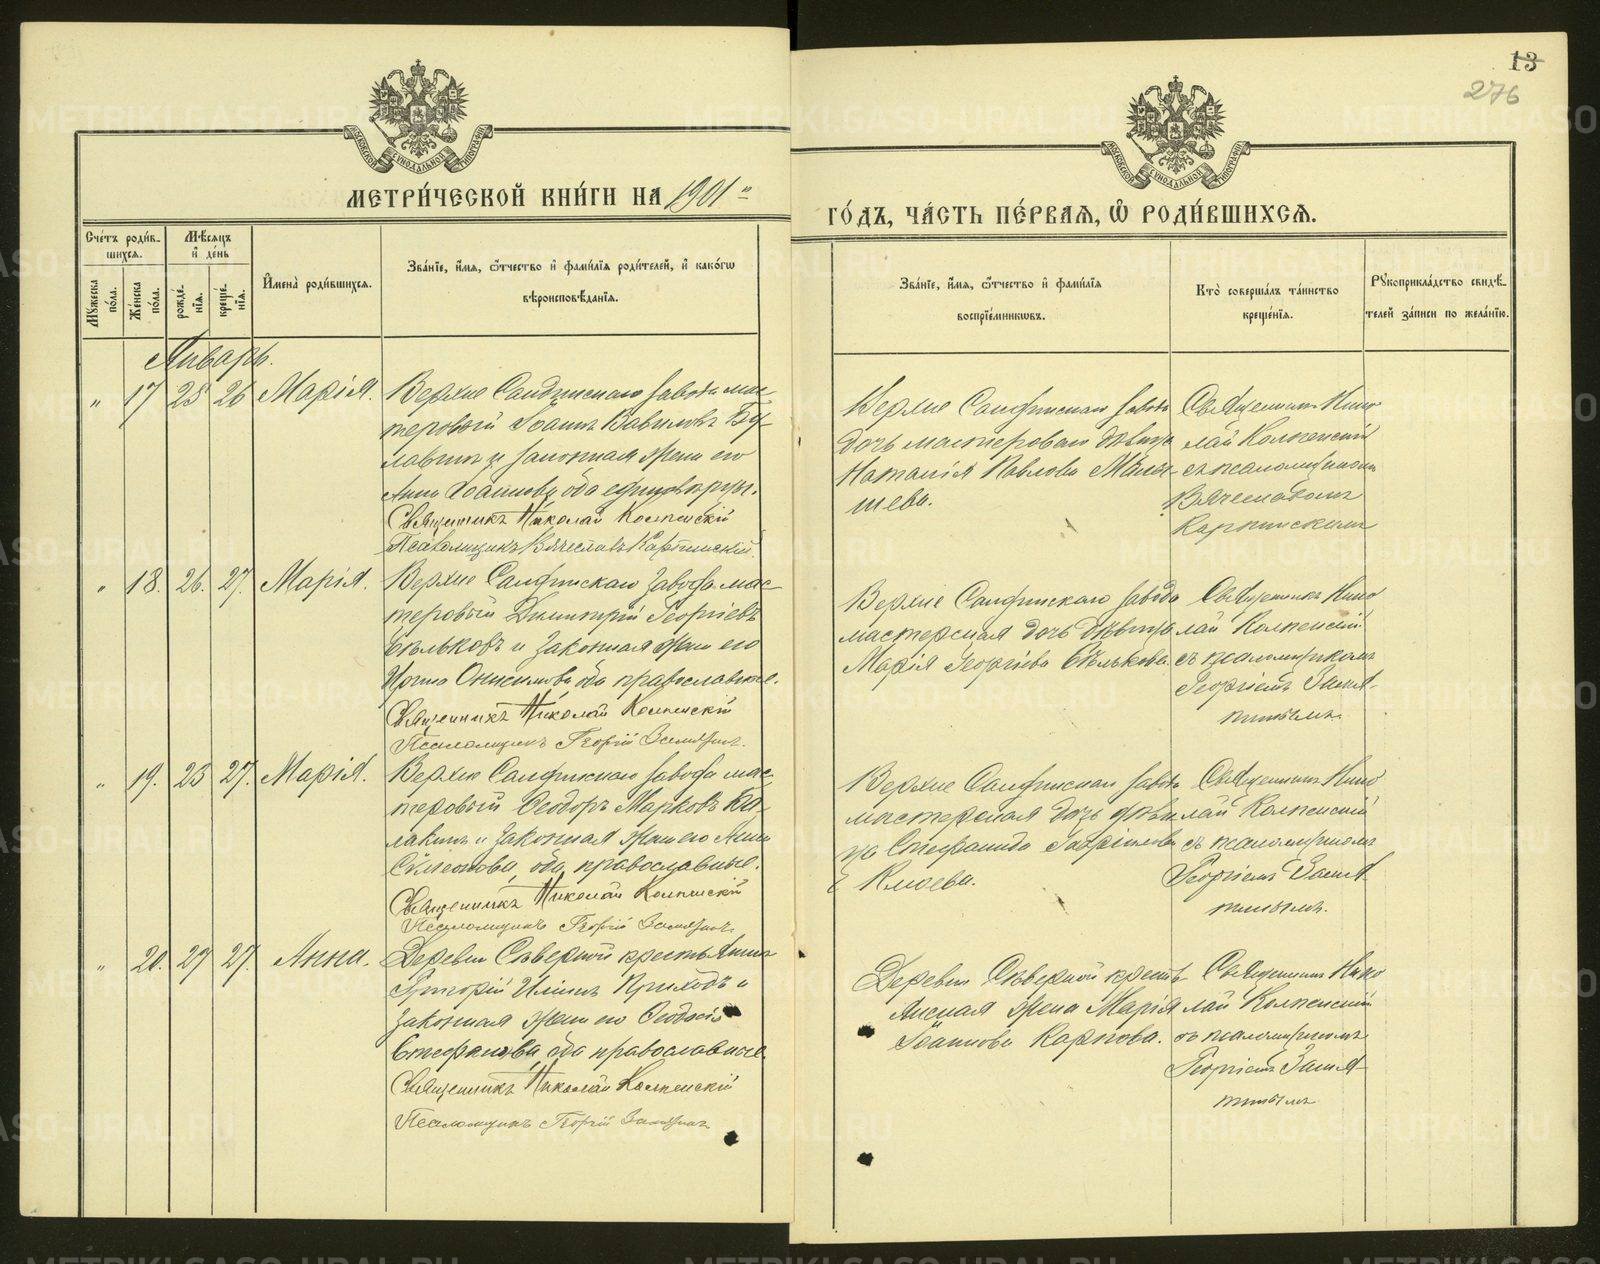 13
276
МОСКОВСКОЙ СѴНОДАЛЬНОЙ ТИПОГРАФІИ
МОСКОВСКОЙ СѴНОДАЛЬНОЙ ТИПОГРАФІИ
МЕТРИ́ЧЕСКОЙ КНИ́ГИ НА 1901
ГО́ДЪ, ЧА́СТЬ ПЕ́РВАѦ, Ѡ҆ РОДИ́ВШИХСѦ.
Сче́тъ роди́в-
шихсѧ.
Мꙋжеска по́ла.
Же́нска по́ла.
Мѣ́сѧцъ
и҆ де́нь
рожде́-
нїѧ.
креще́-
нїѧ.
И҆мена̀ роди́вшихсѧ.
Зва́нїе, и҆́мѧ, ѻ҆́тчество и҆ фами́лїѧ роди́телей, и҆ како́гѡ
вѣроисповѣ́данїѧ.
Зва́нїе, и҆́мѧ, ѻ҆́тчество и҆ фами́лїѧ
воспрїе́мникѡвъ.
Кто̀ соверша́лъ та́инство
креще́нїѧ.
Рꙋкоприкла́дство свидѣ́-
телей за́писи по жела́нїю.
Январь.
" 17 25 26 Марія.
Верхне Салдинскаго завода мас-
теровый Іоаннъ Вавиловъ
и законная жена его
Анна Іоаннова, оба единовѣрцы.
Священникъ Николай Колпенскій
Псаломщикъ Вячеславъ Карпинскій
Верхне Салдинскаго завода
дочь мастероваго дѣвица
Наталія Павлова
шева.
Священникъ Нико
лай Колпенскій
съ псаломщикомъ
Вячеславомъ
Карпинскимъ
" 18. 26. 27. Марія.
Верхне Салдинскаго завода мас-
теровый Димитрій Георгіевъ
Бѣльковъ и законная жена его
Ирина Онисимова, оба православные.
Священникъ Николай Колпенскій
Псаломщикъ Георгій
Верхне Салдинскаго завода
мастерская дочь дѣвица
Марія Георгіева Бѣлькова.
Священникъ Нико
лай Колпенскій
съ псаломщикомъ
Георгіемъ
" 19. 23 27. Марія.
Верхне Салдинскаго завода мас-
теровый Ѳеодоръ Марковъ Ба-
лакинъ и законная жена его Анна
Симеонова, оба православные.
Священникъ Николай Колпенскій
Псаломщикъ Георгій
Верхне Салдинскаго завода
мастерская дочь дѣви
ца Стефанида Гавріилова
Клюева.
Священникъ Нико
лай Колпенскій
съ псаломщикомъ
Георгіемъ
" 20. 27 27. Анна.
Деревни Сѣверной крестьянинъ
Григорій Ильинъ Приходъ и
законная жена его Ѳеодосія
Стефанова, оба православные
Священникъ Николай Колпенскій
Псаломщикъ Георгій
Деревни Сѣверной кресть
янская жена Марія
Іоаннова Карпова.
Священникъ Нико
лай Колпенскій
съ псаломщикомъ
Георгіемъ
METRIKI.GASO-URAL.RU